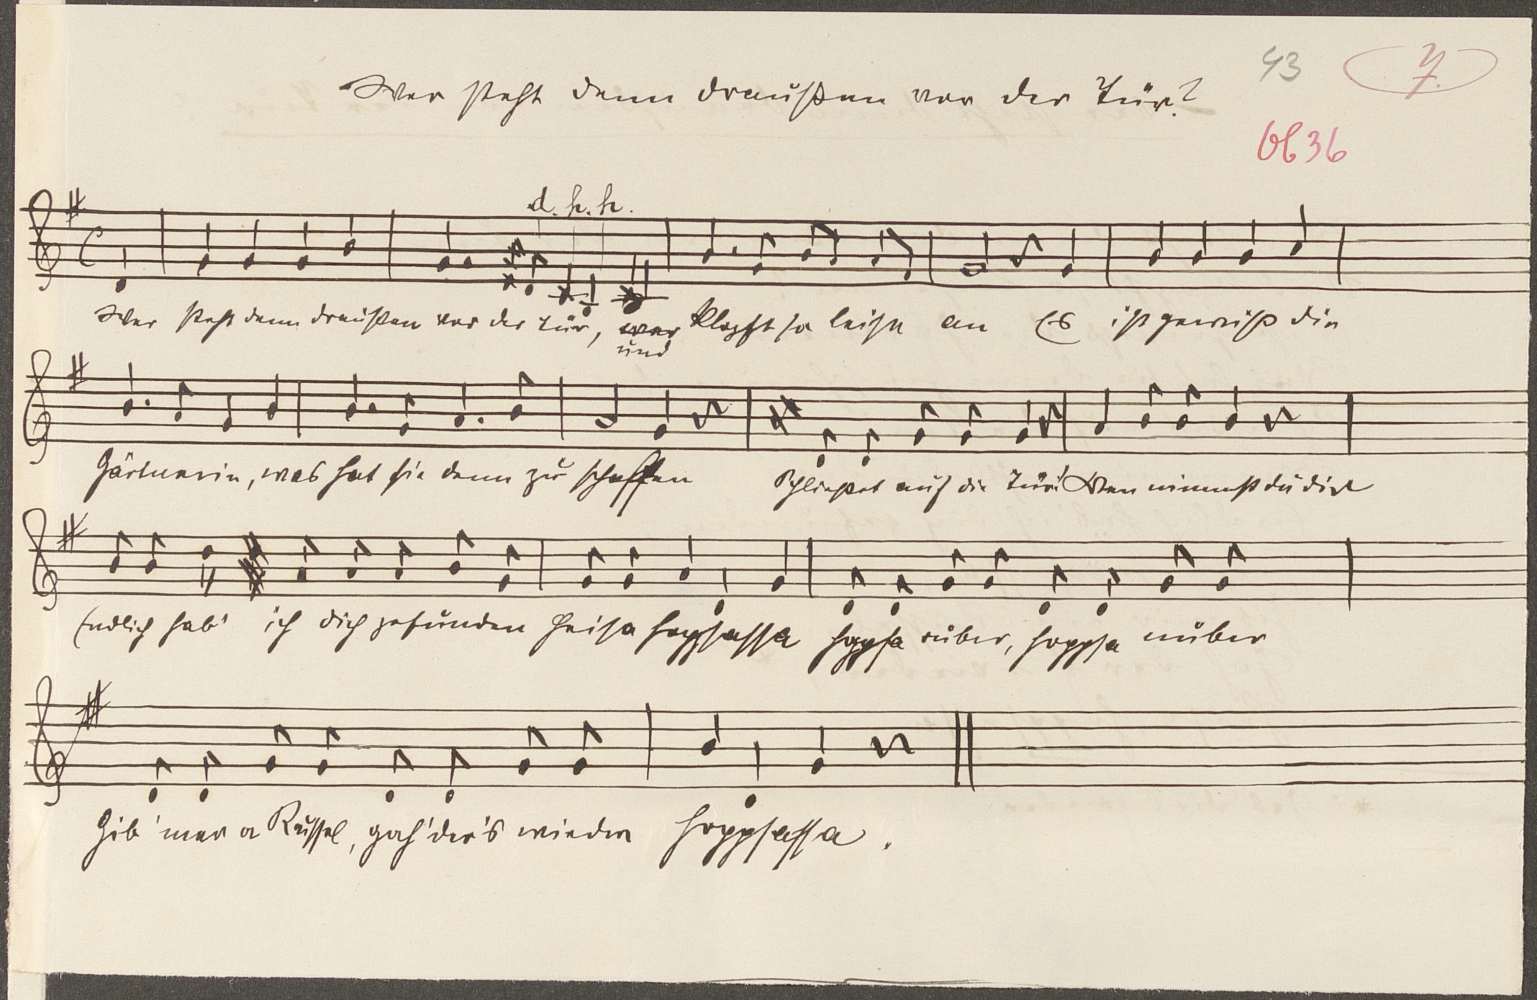 43 7.
Wer steht denn draußen vor der Tür?
6636
d. h. h.
Wer steht denn draußen vor der Tür, wer klopft so leise an Es ist gewiß die
und
Gärtnerin, was hat sie denn zu schaffen Schließet auf die Tür! Wen nimmst du dir
Endlich hab' ich dich gefunden heisa hopsassa hopsa rüber, hoppsa nüber
Gib' mer a Kussel, gah' der's wieder hoppsassa.